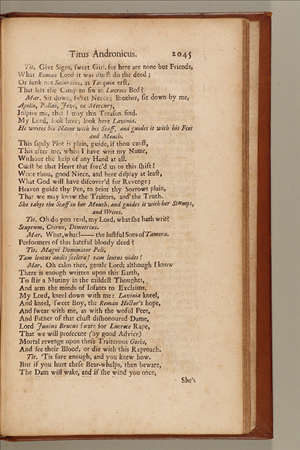 Titus Andronicus. 2045
Tit. Give Signs, sweet Girl, for here are none but Friends,
What Roman Lord it was durst do the deed;
Or slunk not Saturnine, as Tarquin erst,
That left the Camp to sin in Lucrece Bed?
Mar. Sit down, sweet Neece; Brother, sit down by me,
Apollo, Pallas, Jove, or Mercury,
Inspire me, that I may this Treason find.
My Lord, look here; look here Lavinia.
He writes his Name with his Staff, and guides it with his Feet
and Mouth.
This sandy Plot is plain, guide, if thou canst,
This after me, when I have writ my Name,
Without the help of any Hand at all.
Curst be that Heart that forc'd us to this shift!
Write thou, good Niece, and here display at least,
What God will have discover'd for Revenge;
Heaven guide thy Pen, to print thy Sorrows plain,
That we may know the Traitors, and the Truth.
She takes the Staff in her Mouth, and guides it with her Stumps,
and Writes.
Tit. Oh do you read, my Lord, what she hath writ?
Stuprum, Chiron, Demetrius.
Mar. What, what!—— the lustful Sons of Tamora.
Performers of this hateful bloody deed?
Tit. Magni Dominator Poli,
Tam lentus audis scelera! tam lentus vides!
Mar. Oh calm thee, gentle Lord; although I know
There is enough written upon this Earth,
To stir a Mutiny in the mildest Thoughts,
And arm the minds of Infants to Exclaims.
My Lord, kneel down with me: Lavinia kneel,
And kneel, sweet Boy, the Roman Hector's hope,
And swear with me, as with the woful Peer,
And Father of that chast dishonoured Dame,
Lord Junius Brutus swore for Lucrece Rape,
That we will prosecute (by good Advice)
Mortal revenge upon these Traiterous Goths,
And see their Blood, or die with this Reproach.
Tit. 'Tis sure enough, and you knew how.
But if you hurt these Bear-whelps, then beware,
The Dam will wake, and if she wind you once,
She's